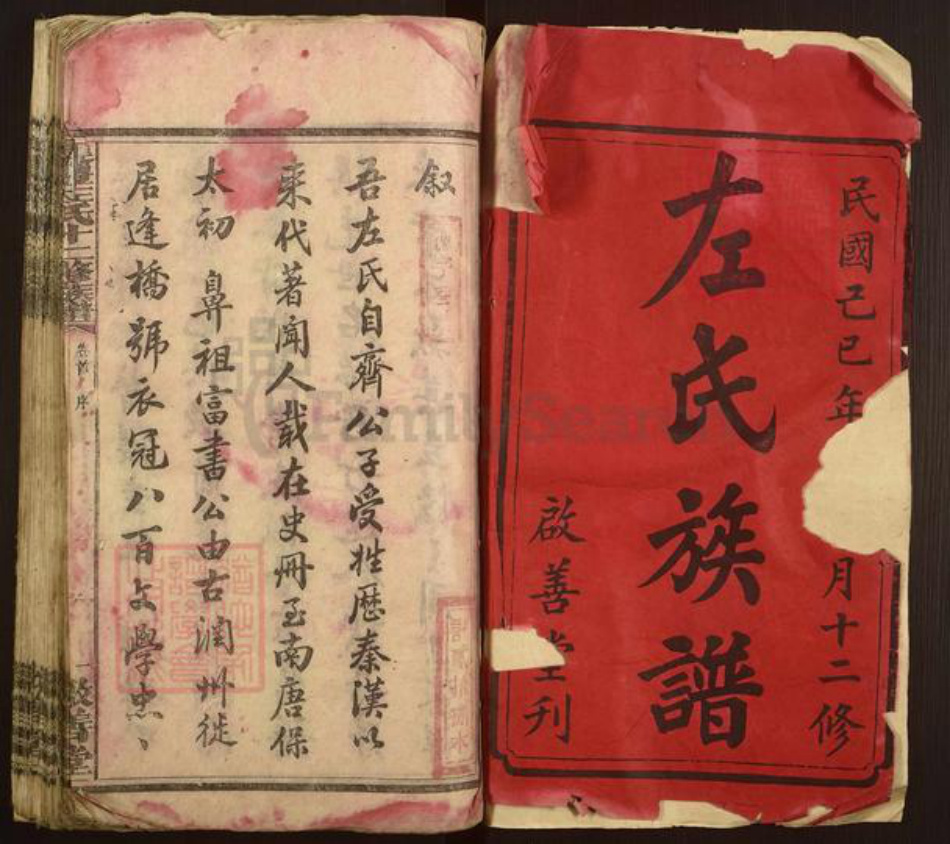 民國己巳年
月十二修
左氏族譜
啟善堂刊
叙
吾左氏自齊公子受姓歷秦漢以
來代著聞人載在史冊至南唐保
太初 鼻祖富書公由古潤州徙
居逢橋號衣冠八百文學忠、
左氏十二修族譜
卷首 序
一
啟善堂
FamilySearch